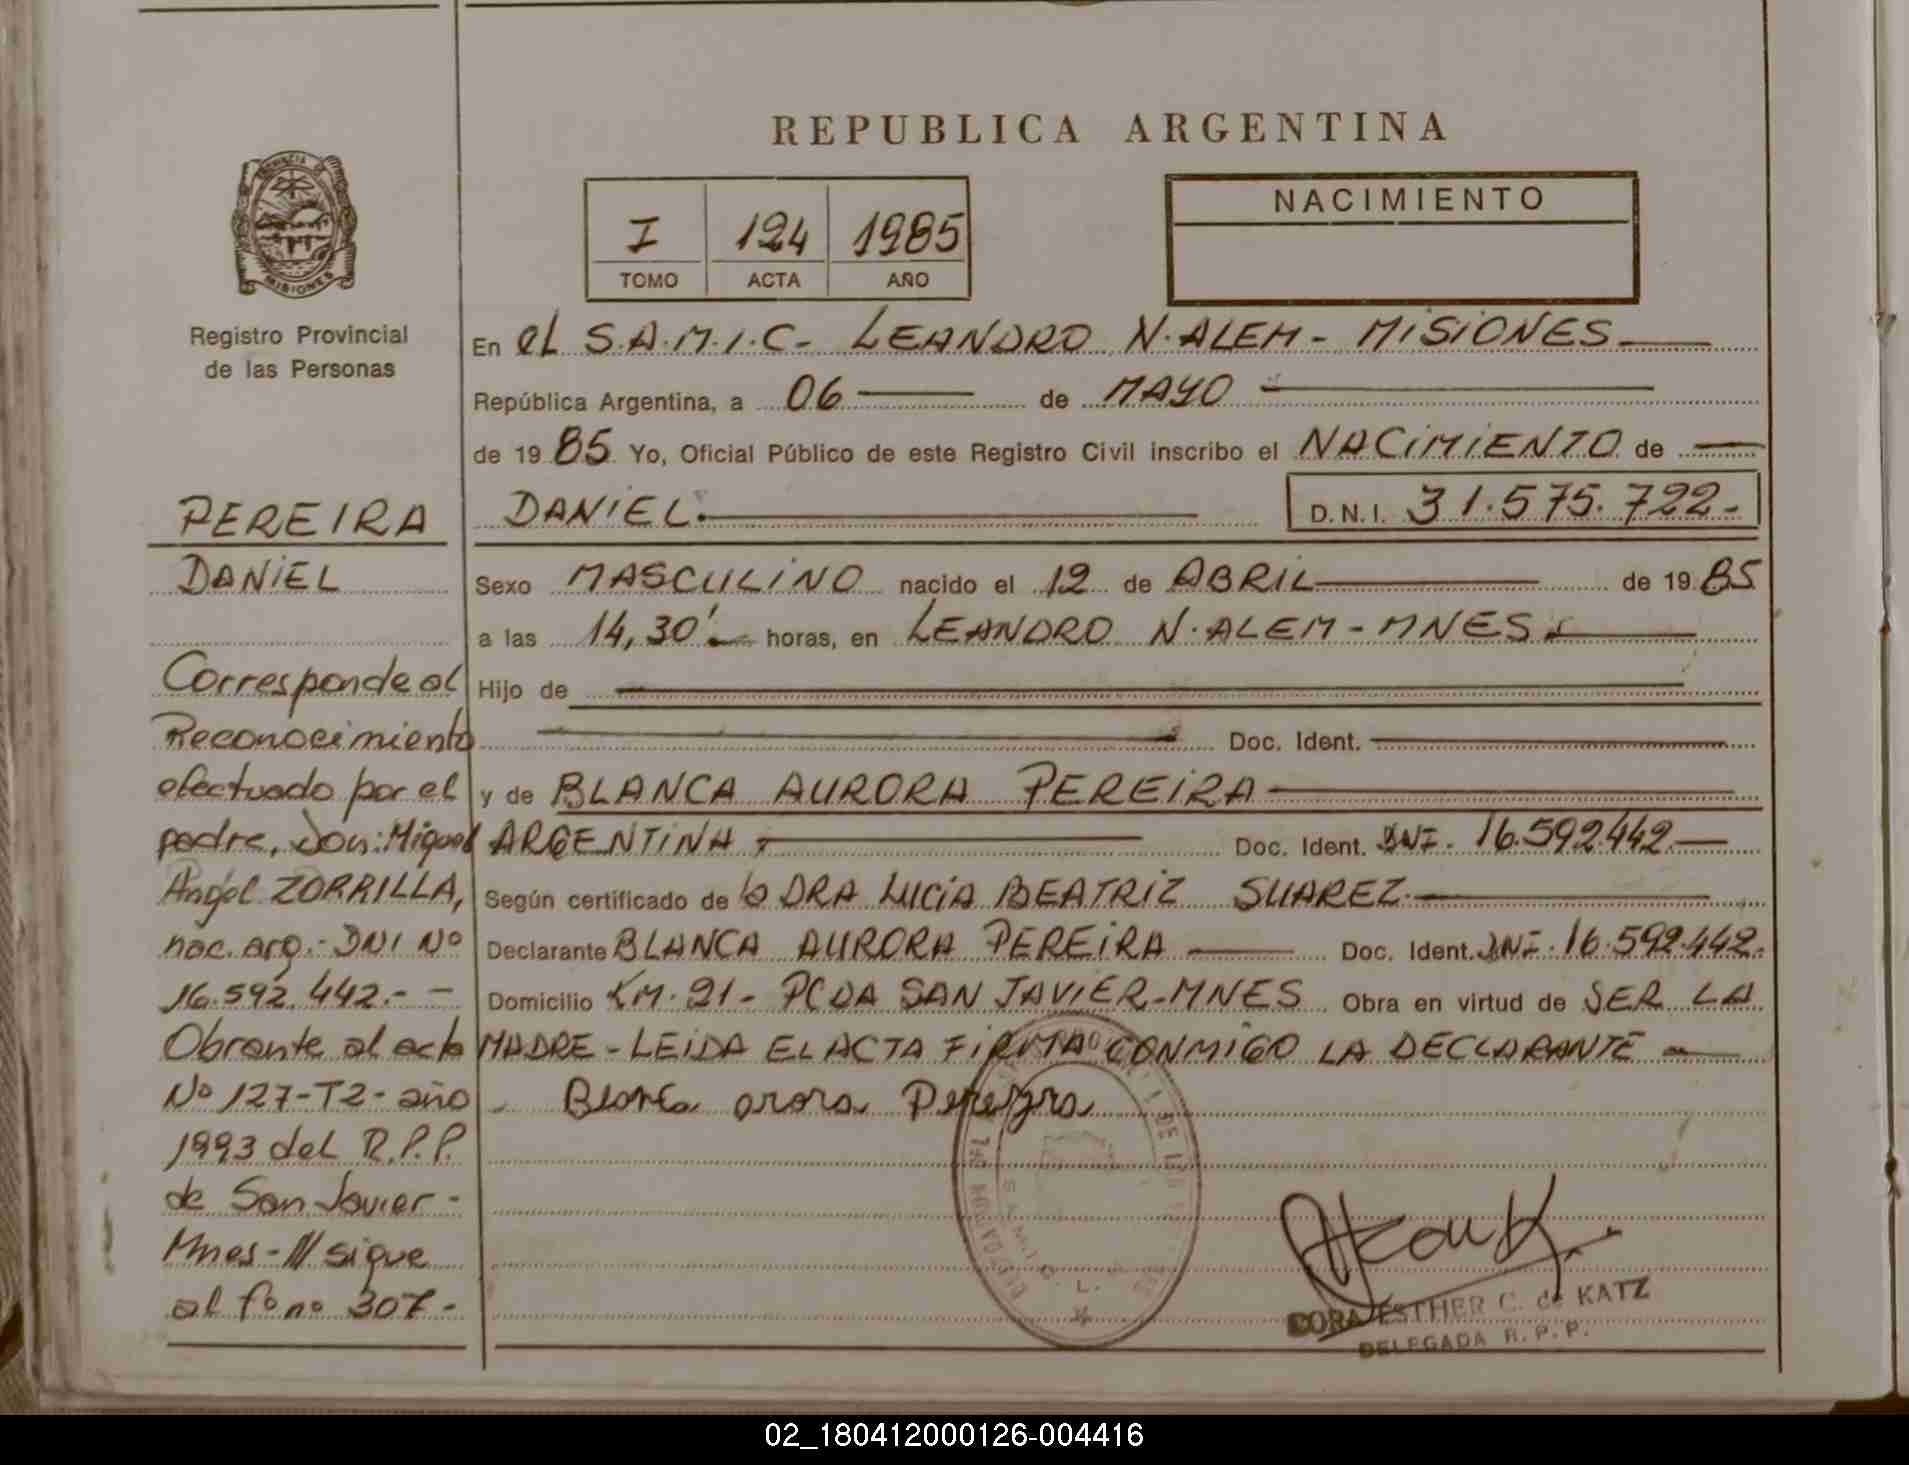 REPUBLICA ARGENTINA
NACIMIENTO
I 124 1985
TOMO ACTA AÑO
PROVINCIA DE
MISIONES
Registro Provincial
de las Personas
En el S.A.M.I.C- LEANDRO N. ALEM - MISIONES
República Argentina, a 06 de MAYO
de 19 85 Yo, Oficial Público de este Registro Civil inscribo el NACIMIENTO de
DANIEL. D.N.I. 31.575.722-
Sexo MASCULINO nacido el 12 de ABRIL de 19 85
a las 14,30' horas, en LEANDRO N. ALEM - MNES
Hijo de
Doc. Ident.
y de BLANCA AURORA PEREIRA
ARGENTINA Doc. Ident. DNI. 16.592.442
Según certificado de la DRA LUCIA BEATRIZ SUAREZ
Declarante BLANCA AURORA PEREIRA Doc. Ident. DNI. 16.592.442.
Domicilio KM. 21 - PCDA SAN JAVIER - MNES Obra en virtud de SER LA
MADRE - LEIDA EL ACTA FIRMA CONMIGO LA DECLARANTE
Blanca arora Pereyra
DORA ESTHER C. de KATZ
DELEGADA R. P. P.
PEREIRA
DANIEL
Corresponde al
Reconocimiento
efectuado por el
padre, Don: Miguel
Angel ZORRILLA,
nac. arg.- DNI Nº
16.592.442.- -
Obrante al acta
Nº 127-T2- año
1993 del R.P.P.
de San Javier -
Mnes - /// sigue
al fº nº 307-
02_180412000126-004416